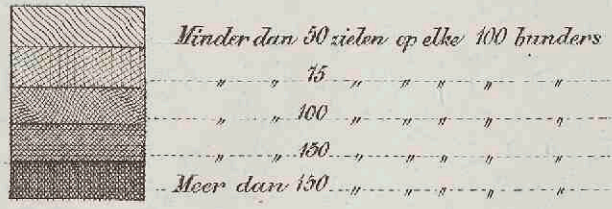 Minder dan 50 zielen op elke 100 bunders
" " 75 " " " " "
" " 100 " " " " "
" " 150 " " " " "
Meer dan 150 " " " " "